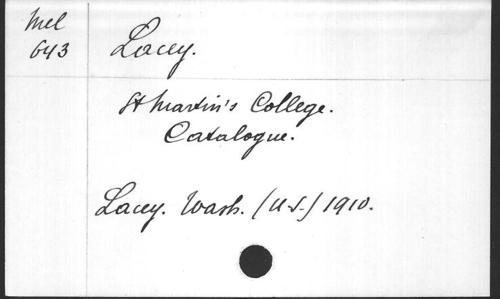 Mel
643
Lacey.
St Martin's College.
Catalogue.
Lacey. Wash. (U.S.) 1910.